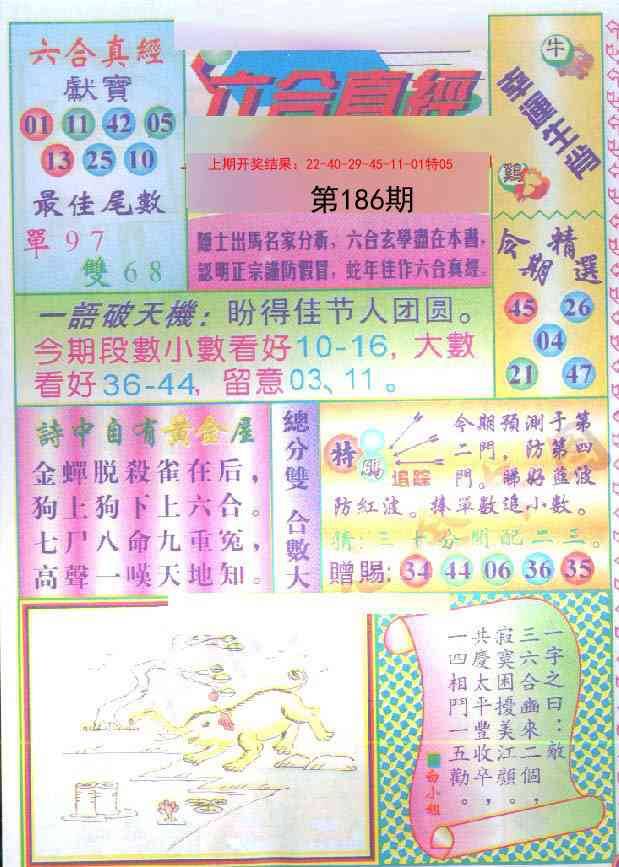 六合真經
獻寶
01 11 42 05
13 25 10
最佳尾數
單97
雙68
六合真經
上期开奖结果：22-40-29-45-11-01特05
第186期
隱士出馬名家分析，六合玄學盡在本書，
認明正宗謹防假冒，蛇年佳作六合真經。
牛
幸運生肖
鷄
今期
精選
45 26
04
21 47
一語破天機：盼得佳节人团圆。
今期段數小數看好10-16，大數
看好36-44，留意03、11。
詩中自有黄金屋
金蟬脱殺雀在后，
狗上狗下上六合。
七尸八命九重冤，
高聲一嘆天地知。
總分雙
合數大
特
追踪
今期預測于第
二門，防第四
門。睇好藍波
防紅波。捧單數追小數。
猜：三十分開配二三。
贈賜：34 44 06 36 35
一字之曰：敵
三六合幽來二個，
寂寞困擾美江頭，
共慶太平豐收卒，
一四相門一五勸。
白小姐